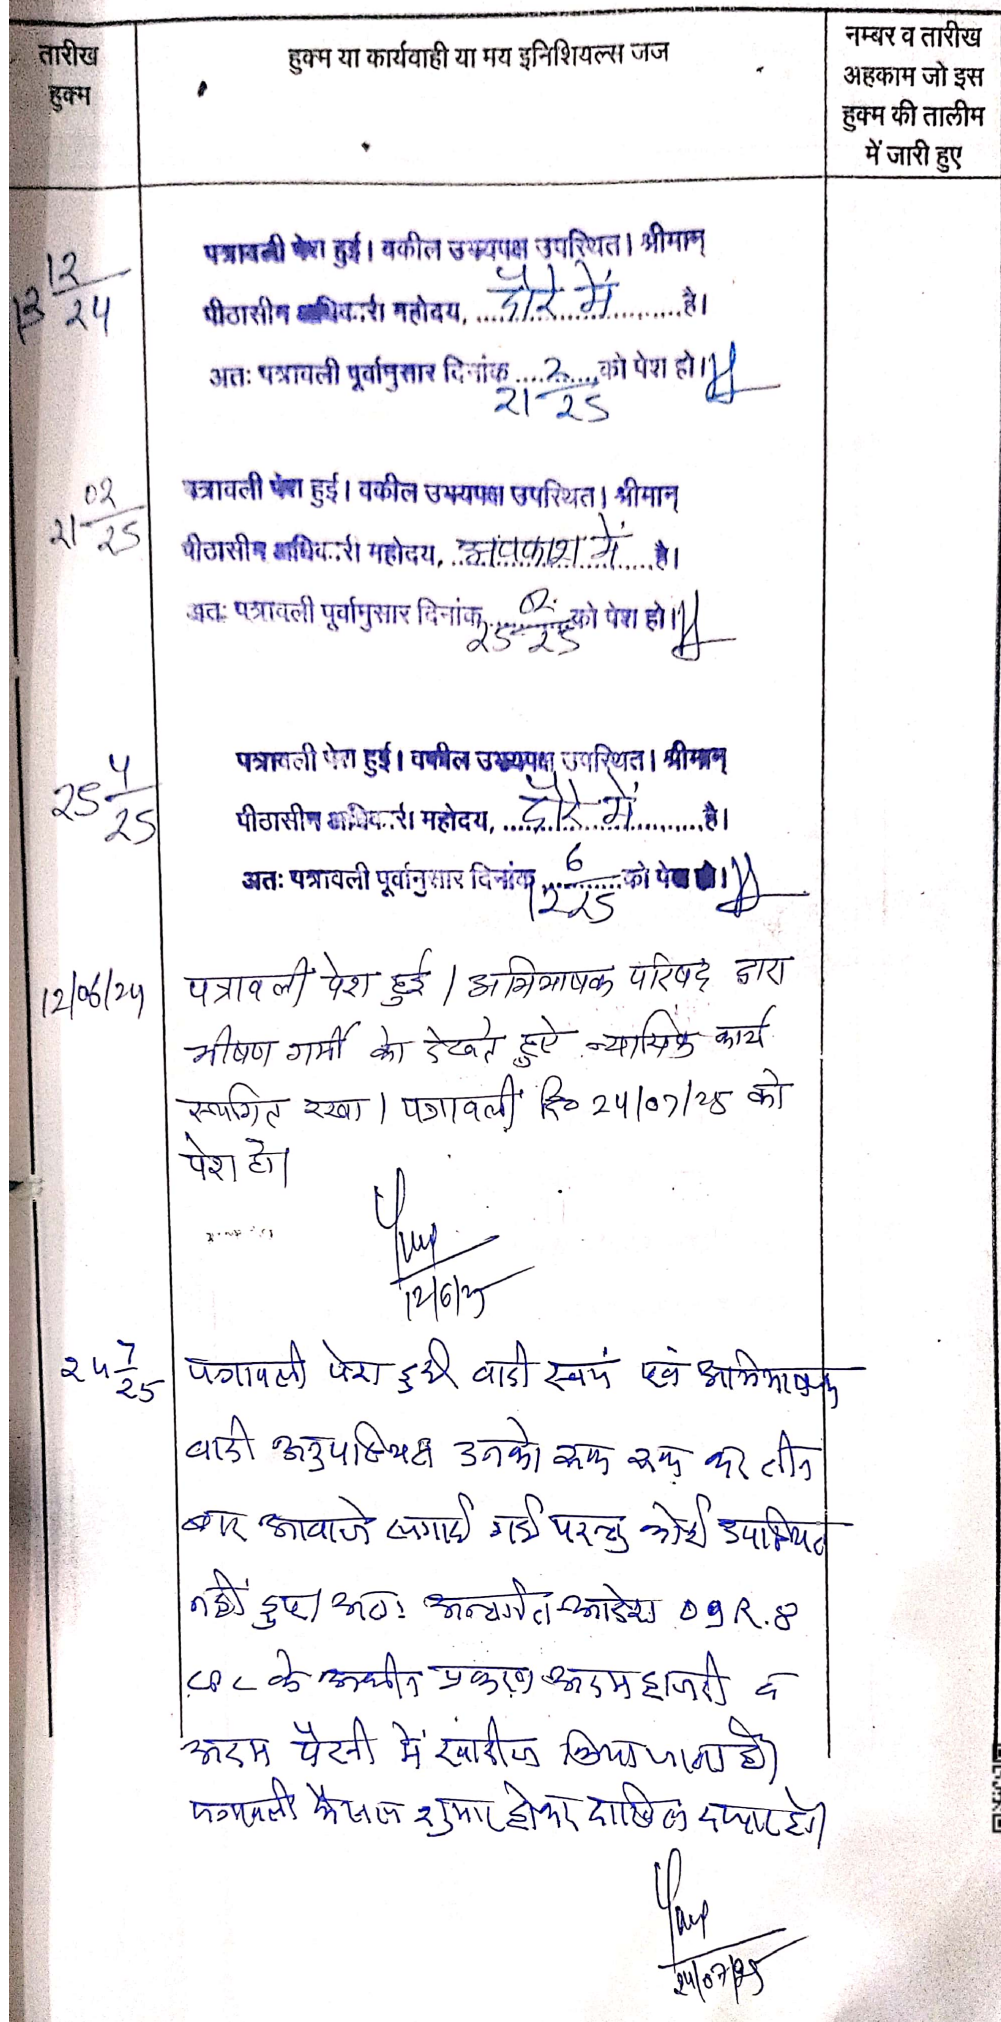 तारीख
हुक्म
हुक्म या कार्यवाही या मय इनिशियल्स जज
नम्बर व तारीख
अहकाम जो इस
हुक्म की तालीम
में जारी हुए
13 12/24
पत्रावली पेश हुई। वकील उभयपक्ष उपस्थित। श्रीमान्
पीठासीन अधिकारी महोदय, दौरे में है।
अतः पत्रावली पूर्वानुसार दिनांक 21 2/25 को पेश हो।
21 02/25
पत्रावली पेश हुई। वकील उभयपक्ष उपस्थित। श्रीमान्
पीठासीन अधिकारी महोदय, अवकाश में है।
अतः पत्रावली पूर्वानुसार दिनांक 25 02/25 को पेश हो।
25 4/25
पत्रावली पेश हुई। वकील उभयपक्ष उपस्थित। श्रीमान्
पीठासीन अधिकारी महोदय, दौरे में है।
अतः पत्रावली पूर्वानुसार दिनांक 12 6/25 को पेश हो।
12/06/24
पत्रावली पेश हुई। अभिभाषक परिषद द्वारा
भीषण गर्मी को देखते हुऐ न्यायिक कार्य
स्थगित रखा। पत्रावली दि० 24/07/25 को
पेश हो।
12/6/25
24 7/25
पत्रावली पेश हुयी वादी स्वयं एवं अभिभाषक
वादी अनुपस्थित उनको रूक रूक कर तीन
बार आवाजे लगाई गई परन्तु कोई उपस्थित
नहीं हुए। अतः अन्तर्गत आदेश 09 R.8
CPC के अधीन प्रकरण अदम हाजरी व
अदम पैरवी में खारीज किया जाता है।
पत्रावली फैसल शुमार होकर दाखिल दफ्तर हो।
24/07/25